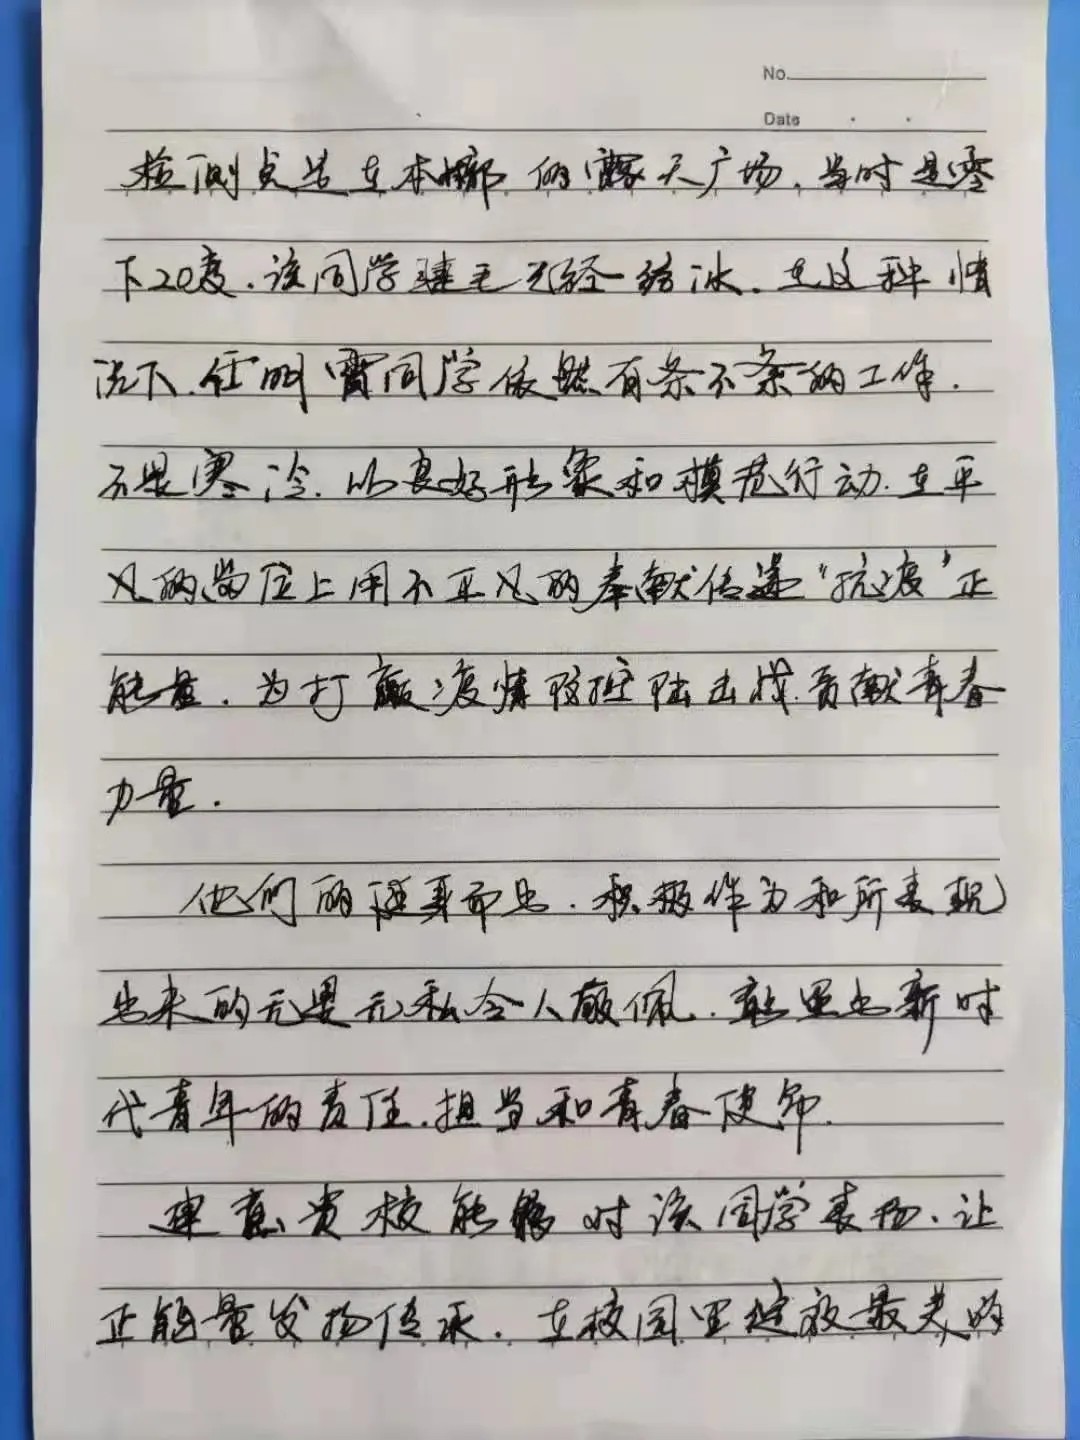 No.
Date
检测点当在本部的露天广场、当时是零
下20度、该同学睫毛已经一结冰、在这种情
况下、任明雷同学依然有条不紊的工作.
不畏寒冷、以良好形象和模范行动、在平
凡的岗位上用不平凡的奉献传递“抗疫”正
能量、为打赢疫情防控阻击战、贡献青春
力量.
他们的挺身而出、积极作为和所表现
出来的无畏无私令人敬佩、彰显出新时
代青年的责任、担当和青春使命.
建意贵校能够对该同学表扬、让
正能量发扬传承、在校园里绽放最美的